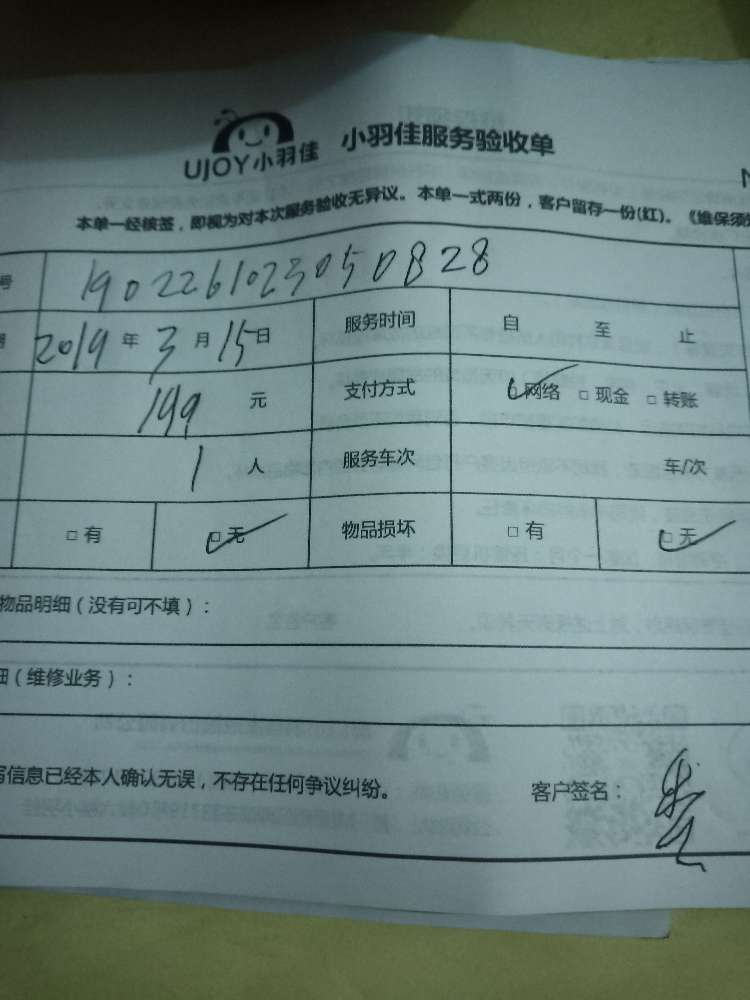 UJOY小羽佳 小羽佳服务验收单
本单一经核签，即视为对本次服务验收无异议。本单一式两份，客户留存一份(红)。《维保须
号 190226102305050828
2019 年 3 月 15 日 服务时间 自 至 止
199 元 支付方式 网络 □ 现金 □ 转账
1 人 服务车次 车/次
□ 有 □ 无 物品损坏 □ 有 □ 无
物品明细（没有可不填）：
细（维修业务）：
写信息已经本人确认无误，不存在任何争议纠纷。 客户签名：